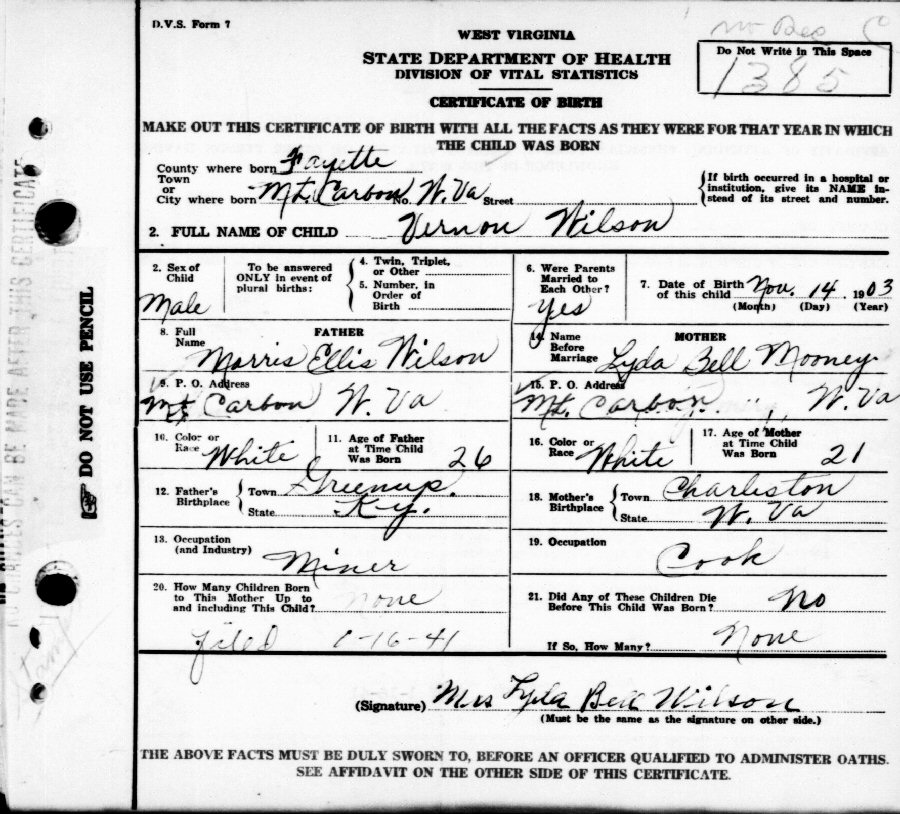 D.V.S. Form 7
WEST VIRGINIA
STATE DEPARTMENT OF HEALTH
DIVISION OF VITAL STATISTICS
CERTIFICATE OF BIRTH
no Rec C
Do Not Write in This Space
1385
MAKE OUT THIS CERTIFICATE OF BIRTH WITH ALL THE FACTS AS THEY WERE FOR THAT YEAR IN WHICH
THE CHILD WAS BORN
County where born Fayette
Town
or
City where born Mt. Carbon No. W. Va Street
If birth occurred in a hospital or
institution, give its NAME in-
stead of its street and number.
2. FULL NAME OF CHILD Vernon Wilson
2. Sex of
Child
Male
To be answered
ONLY in event of
plural births:
4. Twin, Triplet,
or Other
5. Number, in
Order of
Birth
6. Were Parents
Married to
Each Other?
Yes
7. Date of Birth
of this child Nov. 14 1903
(Month) (Day) (Year)
8. Full
Name
FATHER
Morris Ellis Wilson
14. Name
Before
Marriage
MOTHER
Lyda Bell Mooney
9. P. O. Address
Mt Carbon W. Va
15. P. O. Address
Mt. Carbon W. Va
10. Color or
Race White
11. Age of Father
at Time Child
Was Born 26
16. Color or
Race White
17. Age of Mother
at Time Child
Was Born 21
12. Father's
Birthplace
Town Greenup.
State Ky.
18. Mother's
Birthplace
Town Charleston
State W. Va
13. Occupation
(and Industry) Miner
19. Occupation
Cook
20. How Many Children Born
to This Mother Up to
and including This Child? none
21. Did Any of These Children Die
Before This Child Was Born? No
If So, How Many? None
filed 1-16-41
(Signature) Mrs Lyda Bell Wilson
(Must be the same as the signature on other side.)
THE ABOVE FACTS MUST BE DULY SWORN TO, BEFORE AN OFFICER QUALIFIED TO ADMINISTER OATHS.
SEE AFFIDAVIT ON THE OTHER SIDE OF THIS CERTIFICATE.
DO NOT USE PENCIL
CAN BE MADE AFTER THIS CERTIFICATE